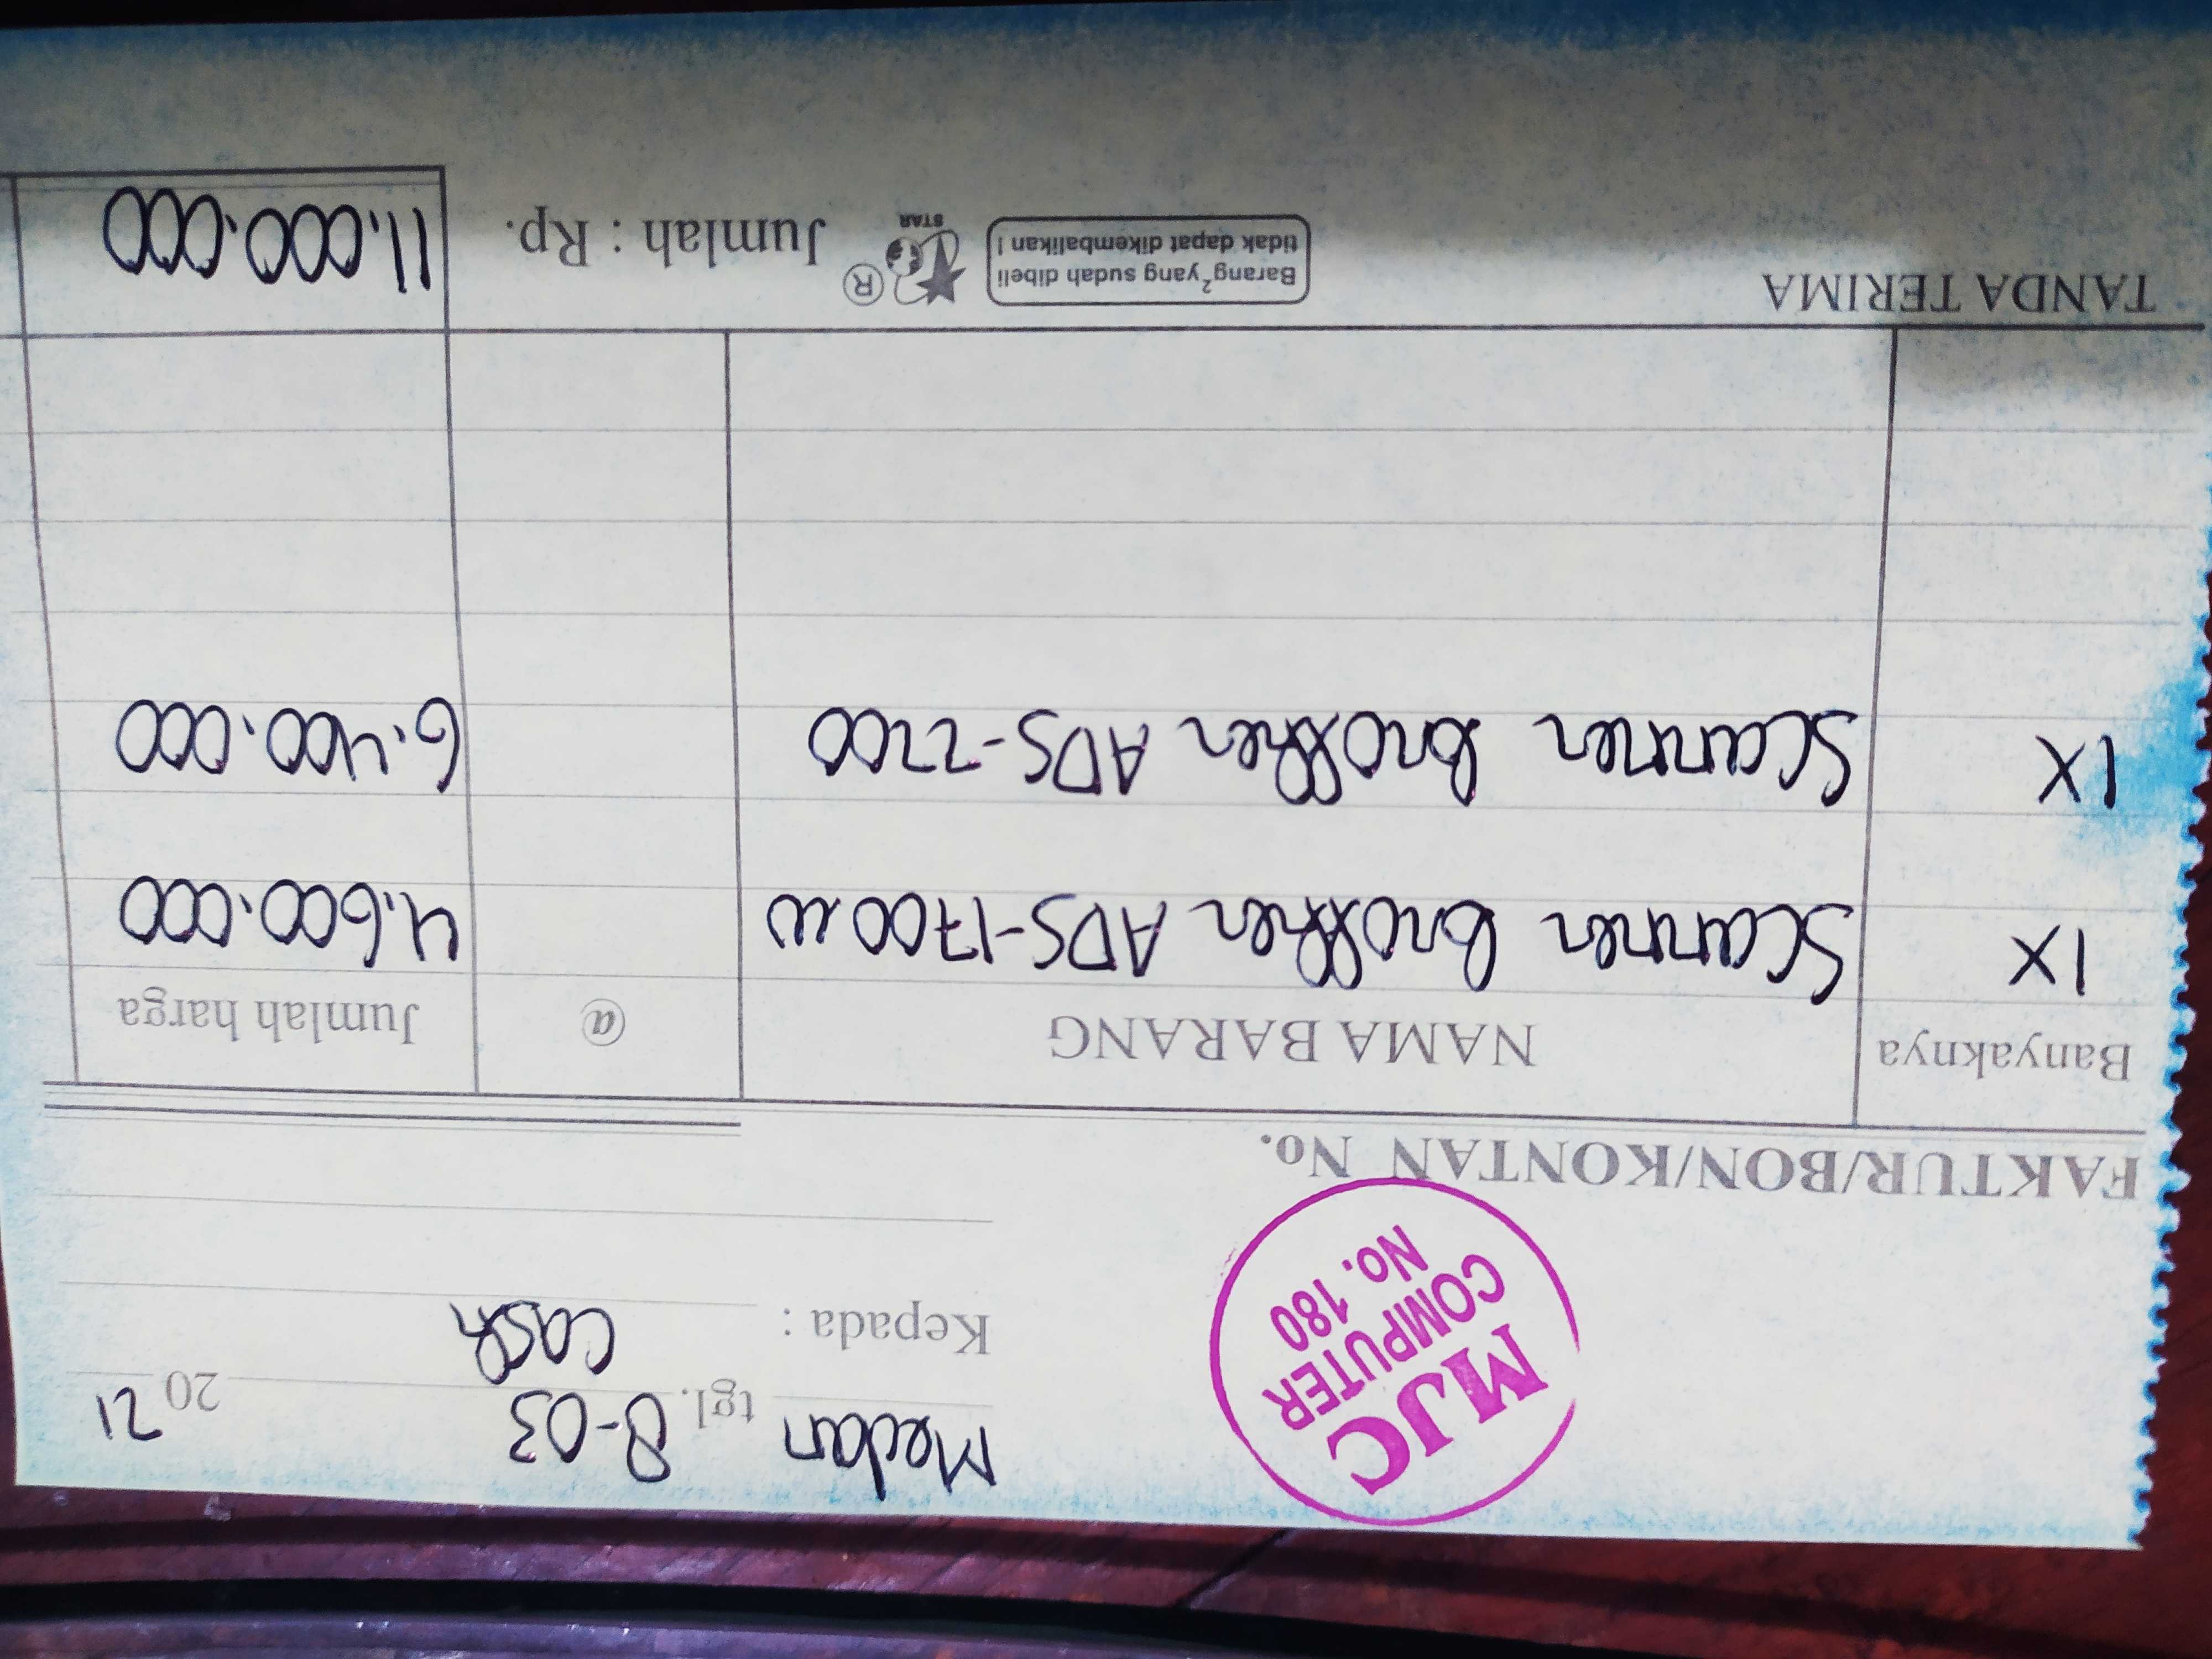 MJC
COMPUTER
No. 180
Medan tgl. 8-03 2021
Kepada : Cash
FAKTUR/BON/KONTAN No.
Banyaknya NAMA BARANG @ Jumlah harga
1x Scanner Brother ADS-1700w 4.600.000
1x Scanner Brother ADS-2200 6.400.000
TANDA TERIMA
Barang² yang sudah dibeli
tidak dapat dikembalikan !
STAR
®
Jumlah : Rp. 11.000.000